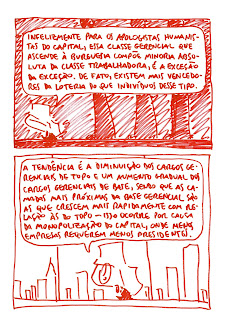 INFELIZMENTE PARA OS APOLOGISTAS HUMANIS-
TAS DO CAPITAL, ESSA CLASSE GERENCIAL QUE
ASCENDE À BURGUESIA COMPÕE MINORIA ABSO-
LUTA DA CLASSE TRABALHADORA, É A EXCEÇÃO
DA EXCEÇÃO. DE FATO, EXISTEM MAIS VENCEDO-
RES DA LOTERIA DO QUE INDIVÍDUOS DESSE TIPO.
A TENDÊNCIA É A DIMINUIÇÃO DOS CARGOS GE-
RENCIAIS DE TOPO E UM AUMENTO GRADUAL DOS
CARGOS GERENCIAIS DE BASE, SENDO QUE AS CA-
MADAS MAIS PRÓXIMAS DA BASE GERENCIAL SÃO
AS QUE CRESCEM MAIS RAPIDAMENTE COM RE-
LAÇÃO ÀS DO TOPO – ISSO OCORRE POR CAUSA
DA MONOPOLIZAÇÃO DO CAPITAL, ONDE MENOS
EMPRESAS REQUEREM MENOS PRESIDENTES.